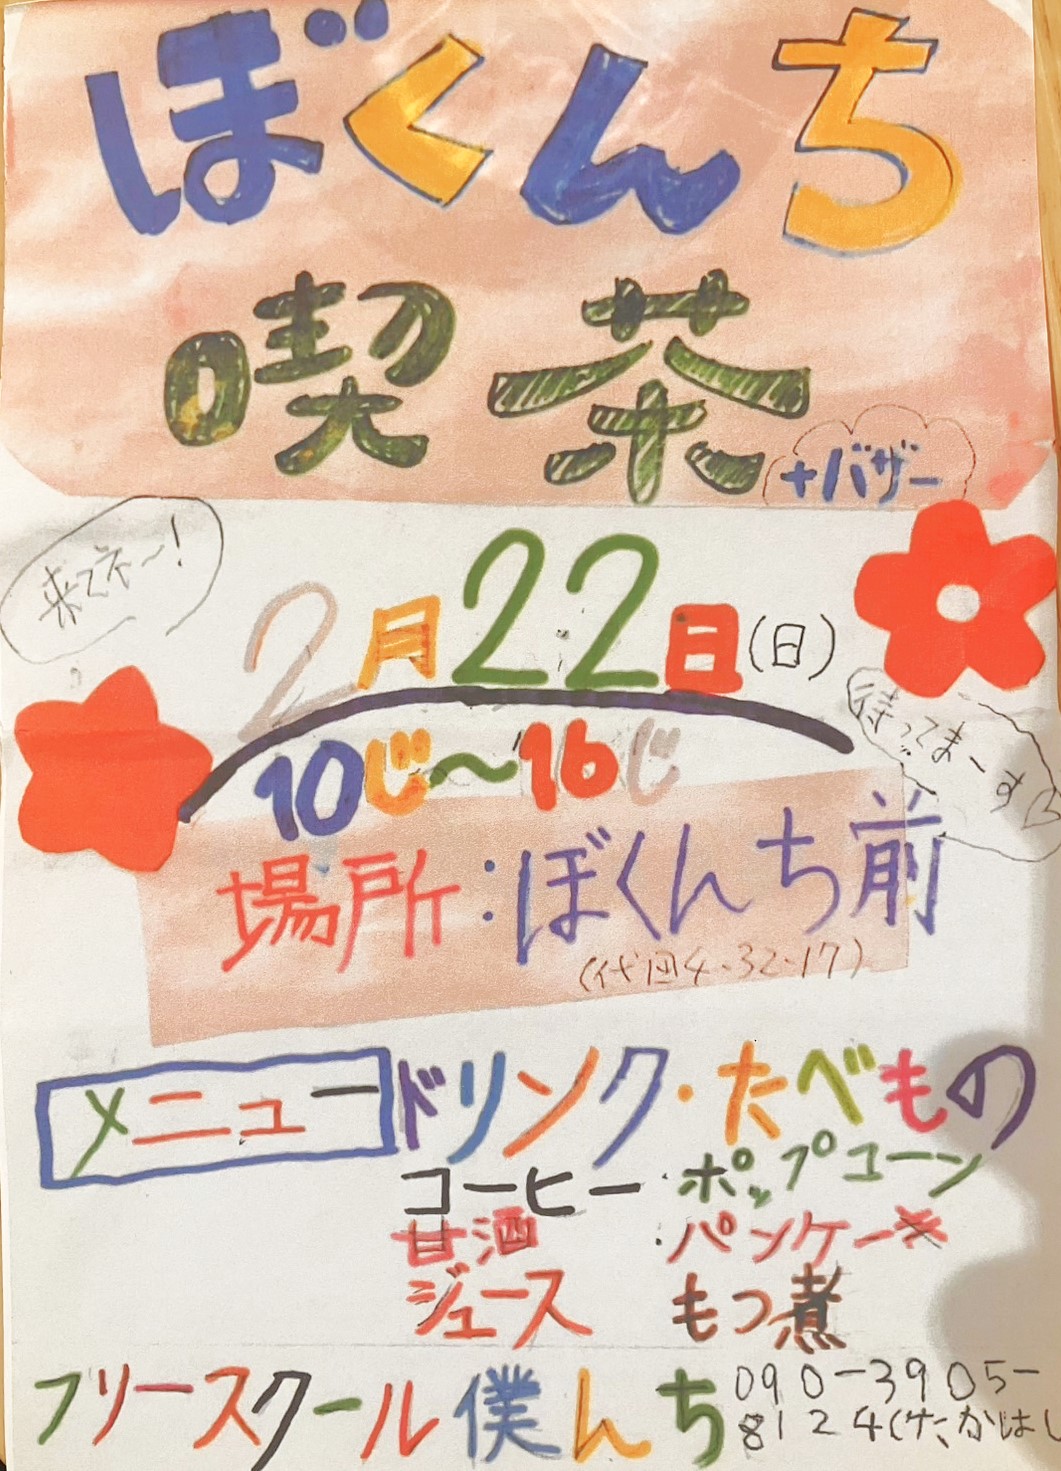 ぼくんち
喫茶
+バザー
来てネ〜!
2月22日(日)
待ってまーす♡
10じ〜16じ
場所:ぼくんち前
(代田4-32-17)
メニュー ドリンク・たべもの
コーヒー ・ポップコーン
甘酒 ・パンケーキ
ジュース もつ煮
フリースクール僕んち 090-3905-
8124(たかはし